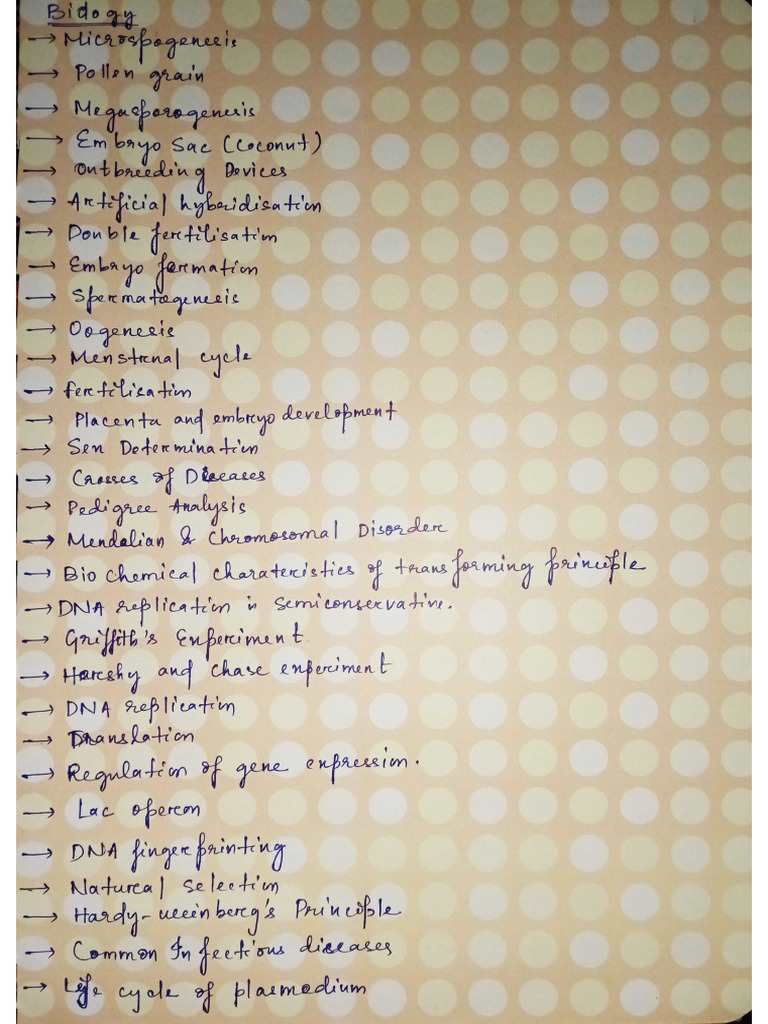 Biology
→ Microspogenesis
→ Pollen grain
→ Megasporogenesis
→ Embryo Sac (Coconut)
→ Outbreeding Devices
→ Artificial hybridisation
→ Double fertilisation
→ Embryo formation
→ Spermatogenesis
→ Oogenesis
→ Menstrual cycle
→ fertilisation
→ Placenta and embryo development
→ Sex Determination
→ Crosses of Diseases
→ Pedigree Analysis
→ Mendelian & Chromosomal Disorder
→ Bio chemical charateristics of transforming principle
→ DNA replication is semiconservative.
→ Griffith's Experiment
→ Harshy and chase experiment
→ DNA replication
→ Translation
→ Regulation of gene expression.
→ Lac operon
→ DNA fingerprinting
→ Natural selection
→ Hardy-weinberg's Principle
→ Common Infectious diseases
→ Life cycle of plasmodium